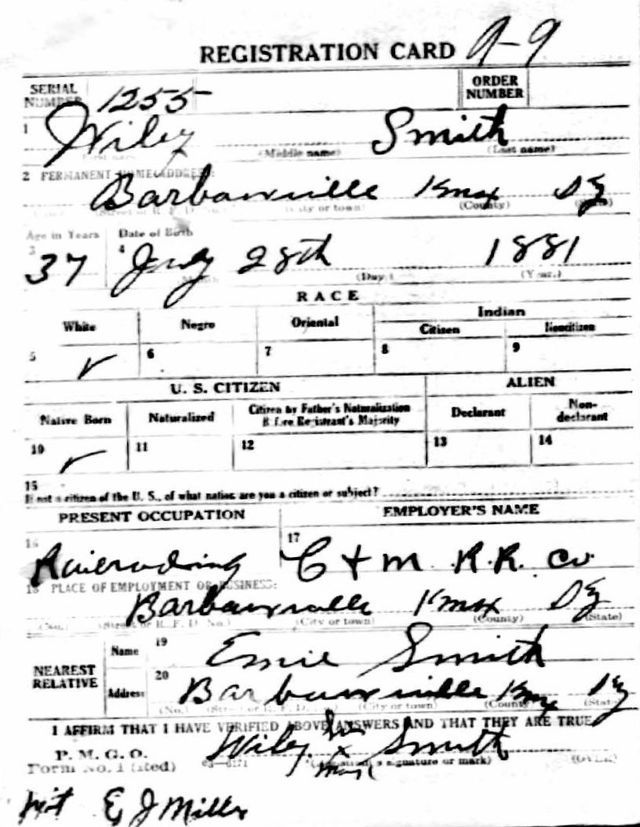 REGISTRATION CARD 9-9
SERIAL NUMBER 1255 ORDER NUMBER
1 Wiley Smith
(Middle name) (Last name)
2 PERMANENT HOME ADDRESS:
Barbourville Knox Ky
(Street or R. F. D. No.) (City or town) (County) (State)
Age in Years Date of Birth
3 37 4 July 28th 1881
(Day.) (Year.)
RACE
White Negro Oriental Indian
Citizen Noncitizen
5 ✓ 6 7 8 9
U. S. CITIZEN ALIEN
Native Born Naturalized Citizen by Father's Naturalization Before Registrant's Majority Declarant Non-declarant
10 ✓ 11 12 13 14
15
If not a citizen of the U. S., of what nation are you a citizen or subject?
PRESENT OCCUPATION EMPLOYER'S NAME
16 Railroading 17 C + M R.R. Co
18 PLACE OF EMPLOYMENT OR BUSINESS:
Barbourville Knox Ky
(No.) (Street or R. F. D. No.) (City or town) (County) (State)
NEAREST RELATIVE Name 19 Smith
Address 20 Barbourville Knox Ky
(No.) (Street or R. F. D. No.) (City or town) (County) (State)
I AFFIRM THAT I HAVE VERIFIED ABOVE ANSWERS AND THAT THEY ARE TRUE
P. M. G. O.
Form No. 1 (Red) Wiley his x mark Smith
(Registrant's signature or mark) (OVER)
E J Miller